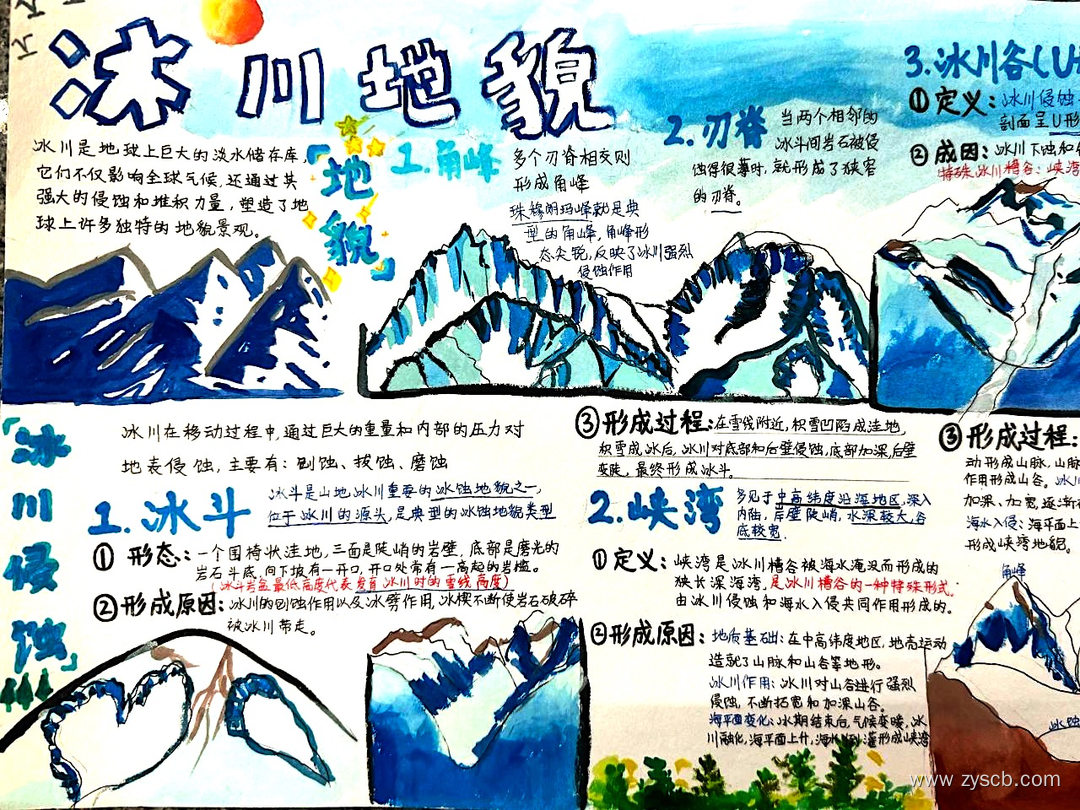 冰川地貌
冰川是地球上巨大的淡水储存库，
它们不仅影响全球气候，还通过其
强大的侵蚀和堆积力量，塑造了地
球上许多独特的地貌景观。
「地貌」
1.角峰
多个刃脊相交则
形成角峰
珠穆朗玛峰就是典
型的角峰，角峰形
态尖锐，反映了冰川强烈
侵蚀作用
2.刃脊
当两个相邻的
冰斗间岩石被侵
蚀得很薄时，就形成了狭窄
的刃脊。
3.冰川谷(U
①定义：冰川侵蚀
剖面呈U形
②成因：冰川下蚀和
特殊冰川槽谷：峡湾
③形成过程：
动形成山脉，山脉
作用形成山谷。冰川
加深、加宽，逐渐
海水入侵：海平面上
形成峡湾地貌。
「冰川侵蚀」
冰川在移动过程中，通过巨大的重量和内部的压力对
地表侵蚀，主要有：刨蚀、拔蚀、磨蚀
1.冰斗
冰斗是山地冰川重要的冰蚀地貌之一，
位于冰川的源头，是典型的冰蚀地貌类型
①形态：一个围椅状洼地，三面是陡峭的岩壁，底部是磨光的
岩石斗底，向下坡有一开口，开口处常有一高起的岩槛。
(冰斗岩盆最低高度代表发育冰川时的雪线高度)
②形成原因：冰川的刨蚀作用以及冰劈作用，冰楔不断使岩石破碎
被冰川带走。
③形成过程：在雪线附近，积雪凹陷成洼地，
积雪成冰后，冰川对底部和后壁侵蚀，底部加深，后壁
变陡，最终形成冰斗。
2.峡湾
多见于中高纬度沿海地区，深入
内陆，岸壁陡峭，水深较大，谷
底较宽.
①定义：峡湾是冰川槽谷被海水淹没而形成的
狭长深海湾，是冰川槽谷的一种特殊形式.
由冰川侵蚀和海水入侵共同作用形成的。
②形成原因：地质基础：在中高纬度地区，地壳运动
造就了山脉和山谷等地形。
冰川作用：冰川对山谷进行强烈
侵蚀，不断拓宽和加深山谷。
海平面变化：冰期结束后，气候变暖，冰
川融化，海平面上升，海水形成峡湾
角峰
冰蚀
www.zyscb.com